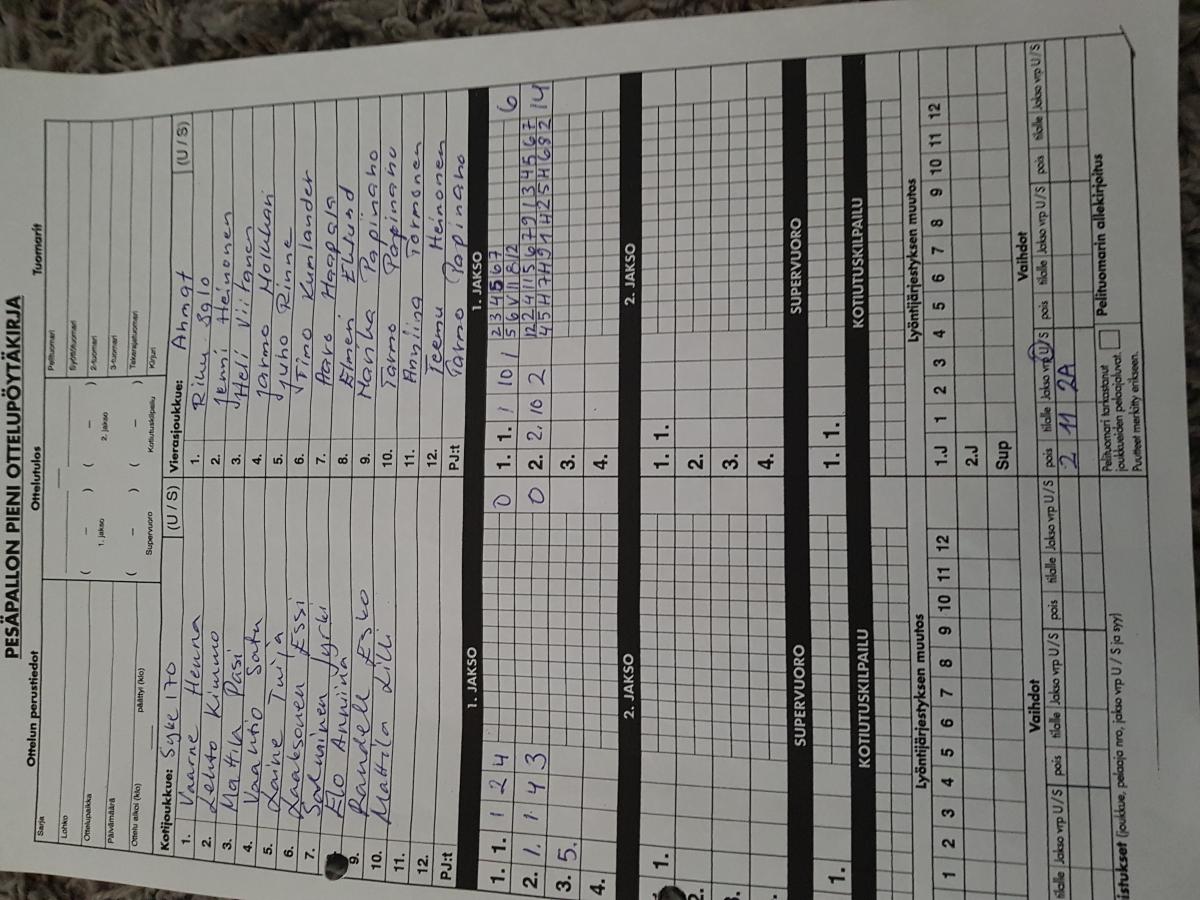 PESÄPALLON PIENI OTTELUPÖYTÄKIRJA
Ottelun perustiedot Ottelutulos Tuomarit
Sarja
Lohko
Ottelupaikka
Päivämäärä
Ottelu alkoi (klo) päättyi (klo)
( – ) ( – )
1. jakso 2. jakso
( – ) ( – )
Supervuoro Kotiutuskilpailu
Pelituomari
Syöttötuomari
2-tuomari
3-tuomari
Takarajatuomari
Kirjuri
Kotijoukkue: Syke 170 (U / S)
1. Vaarne Henna
2. Lehto Kimmo
3. Mattila Pasi
4. Vaantio Satu
5. Laine Tuija
6. Laaksonen Essi
7. Salminen Jyrki
Elo Anniina
9. Randell Esko
10. Mattila Lilli
11.
12.
PJ:t
Vierasjoukkue: Ahmat (U / S)
1. Riku Salo
2. Jenni Heinonen
3. Heli Viitanen
4. Jarmo
5. Juho Rinne
6. Timo Kumlander
7. Aaro Haapala
8. Elmeri Eklund
9. Marika Papinaho
10. Tarmo Papinaho
11. Anniina Tormonen
12. Teemu Heinonen
PJ:t Tarmo Papinaho
1. JAKSO 1. JAKSO
1. 1. 1 2 4 0
2. 1. 4 3 0
3. 5.
4.
1. 1. 1 10 1 2 3 4 5 6 7 6
5 6 V 11 8 12
2. 2. 10 2
14
3.
4.
2. JAKSO 2. JAKSO
1.
2.
1. 1.
2.
3.
4.
SUPERVUORO SUPERVUORO
1. 1. 1.
KOTIUTUSKILPAILU KOTIUTUSKILPAILU
Lyöntijärjestyksen muutos Lyöntijärjestyksen muutos
1 2 3 4 5 6 7 8 9 10 11 12 1.J 1 2 3 4 5 6 7 8 9 10 11 12
2.J
Sup
Vaihdot Vaihdot
tilalle Jakso vrp U / S pois tilalle Jakso vrp U / S pois tilalle Jakso vrp U / S pois tilalle Jakso vrp U / S pois tilalle Jakso vrp U / S pois tilalle Jakso vrp U / S
2 11 2A
istukset (joukkue, pelaaja nro, jakso vrp U / S ja syy)
Pelituomari tarkastanut
joukkueiden pelaajaluvat.
Puutteet merkitty erikseen.
Pelituomarin allekirjoitus